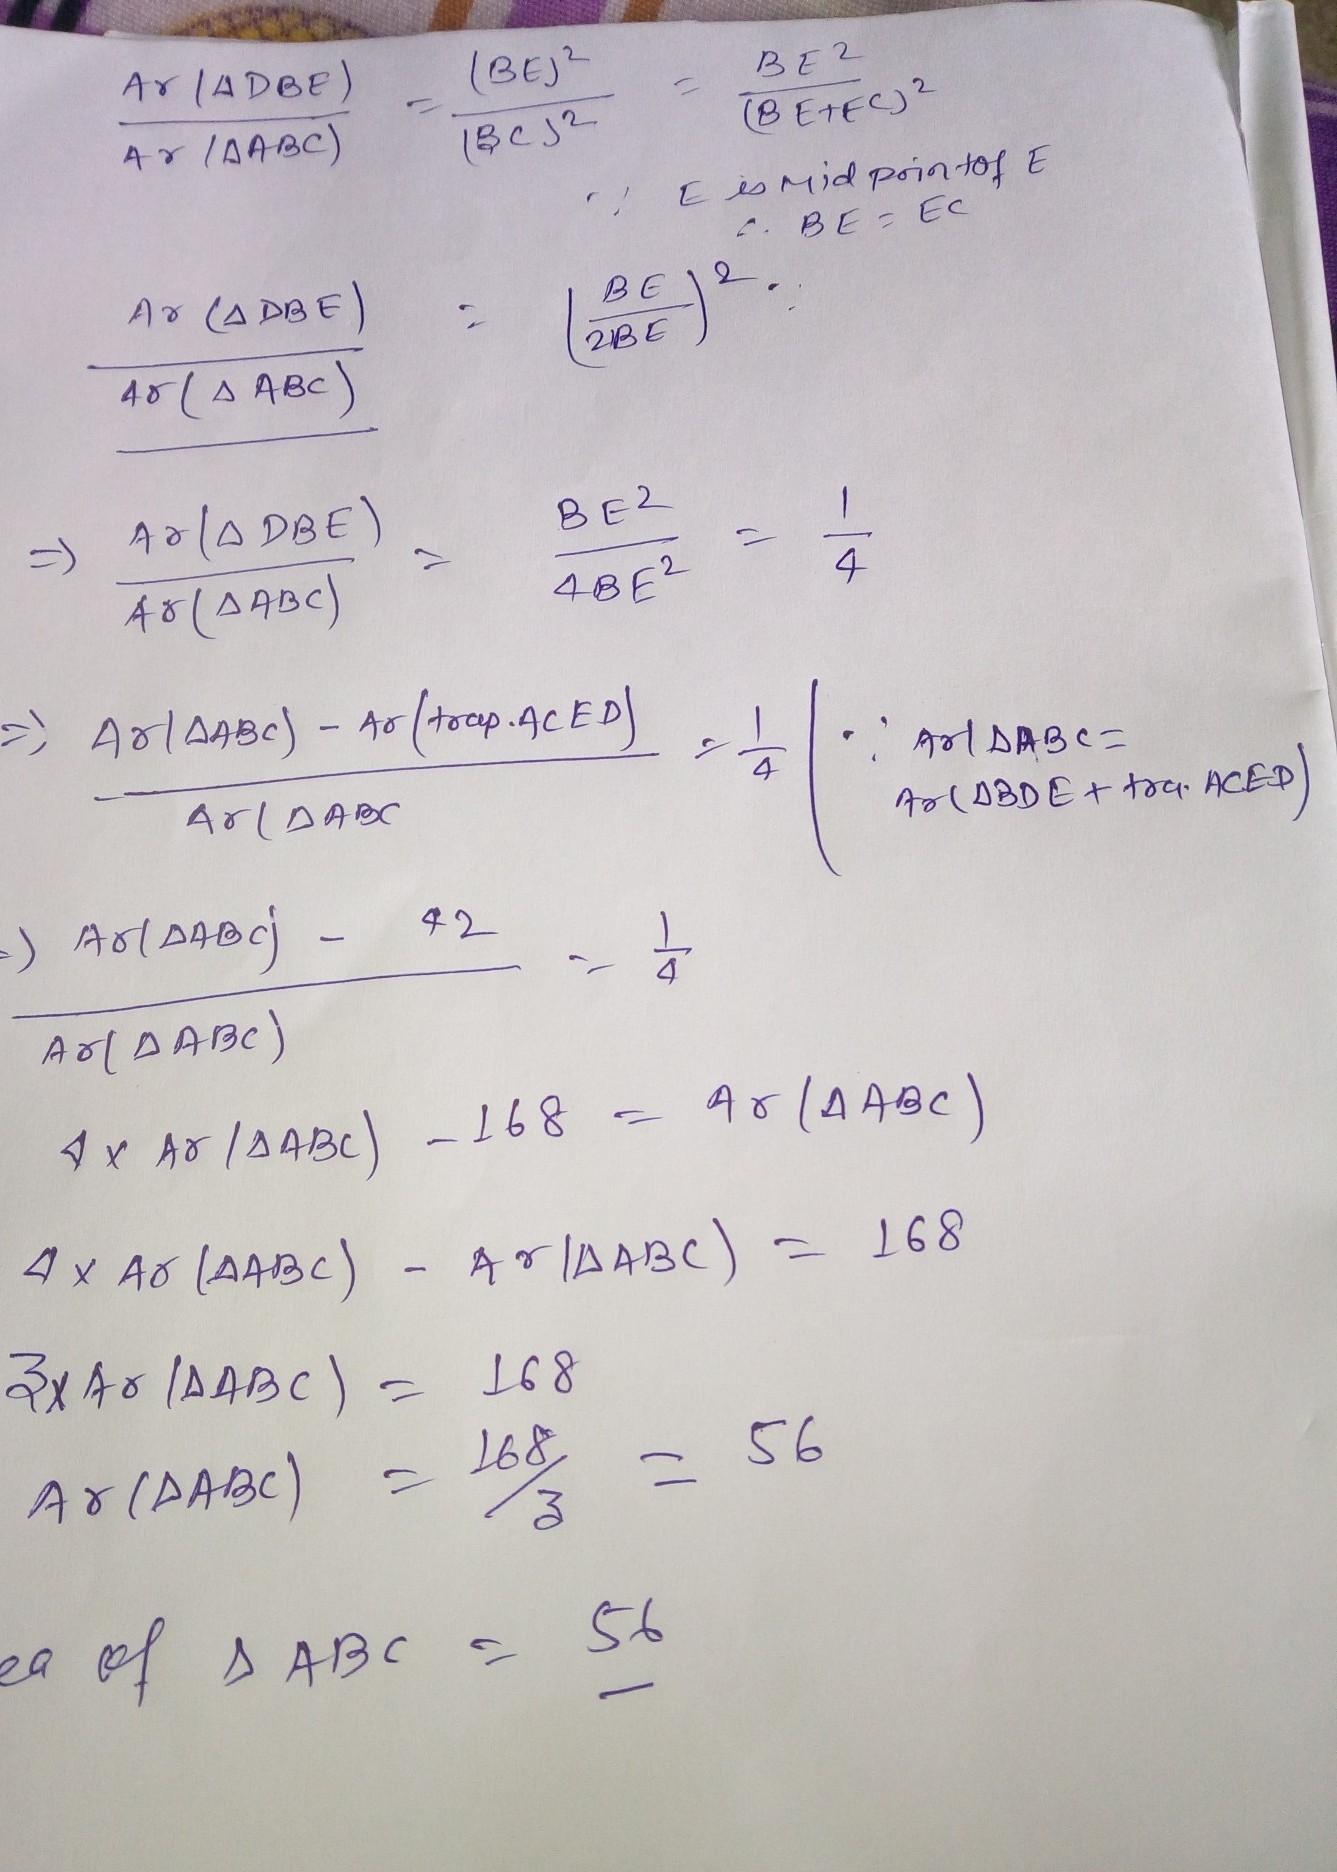 Ar(ΔDBE) / Ar(ΔABC) = (BE)² / (BC)² = BE² / (BE+EC)²
∵ E is Mid point of E
∴ BE = EC
Ar(ΔDBE) / Ar(ΔABC) = (BE / 2BE)² ∵
=> Ar(ΔDBE) / Ar(ΔABC) = BE² / 4BE² = 1/4
=> Ar(ΔABC) - Ar(trap.ACED) / Ar(ΔABC = 1/4 ( ∵ Ar(ΔABC =
Ar(ΔBDE + tra. ACED)
=) Ar(ΔABC) - 42 / Ar(ΔABC) = 1/4
4 x Ar(ΔABC) - 168 = Ar(ΔABC)
4 x Ar(ΔABC) - Ar(ΔABC) = 168
3x Ar(ΔABC) = 168
Ar(ΔABC) = 168/3 = 56
ea of Δ ABC = 56